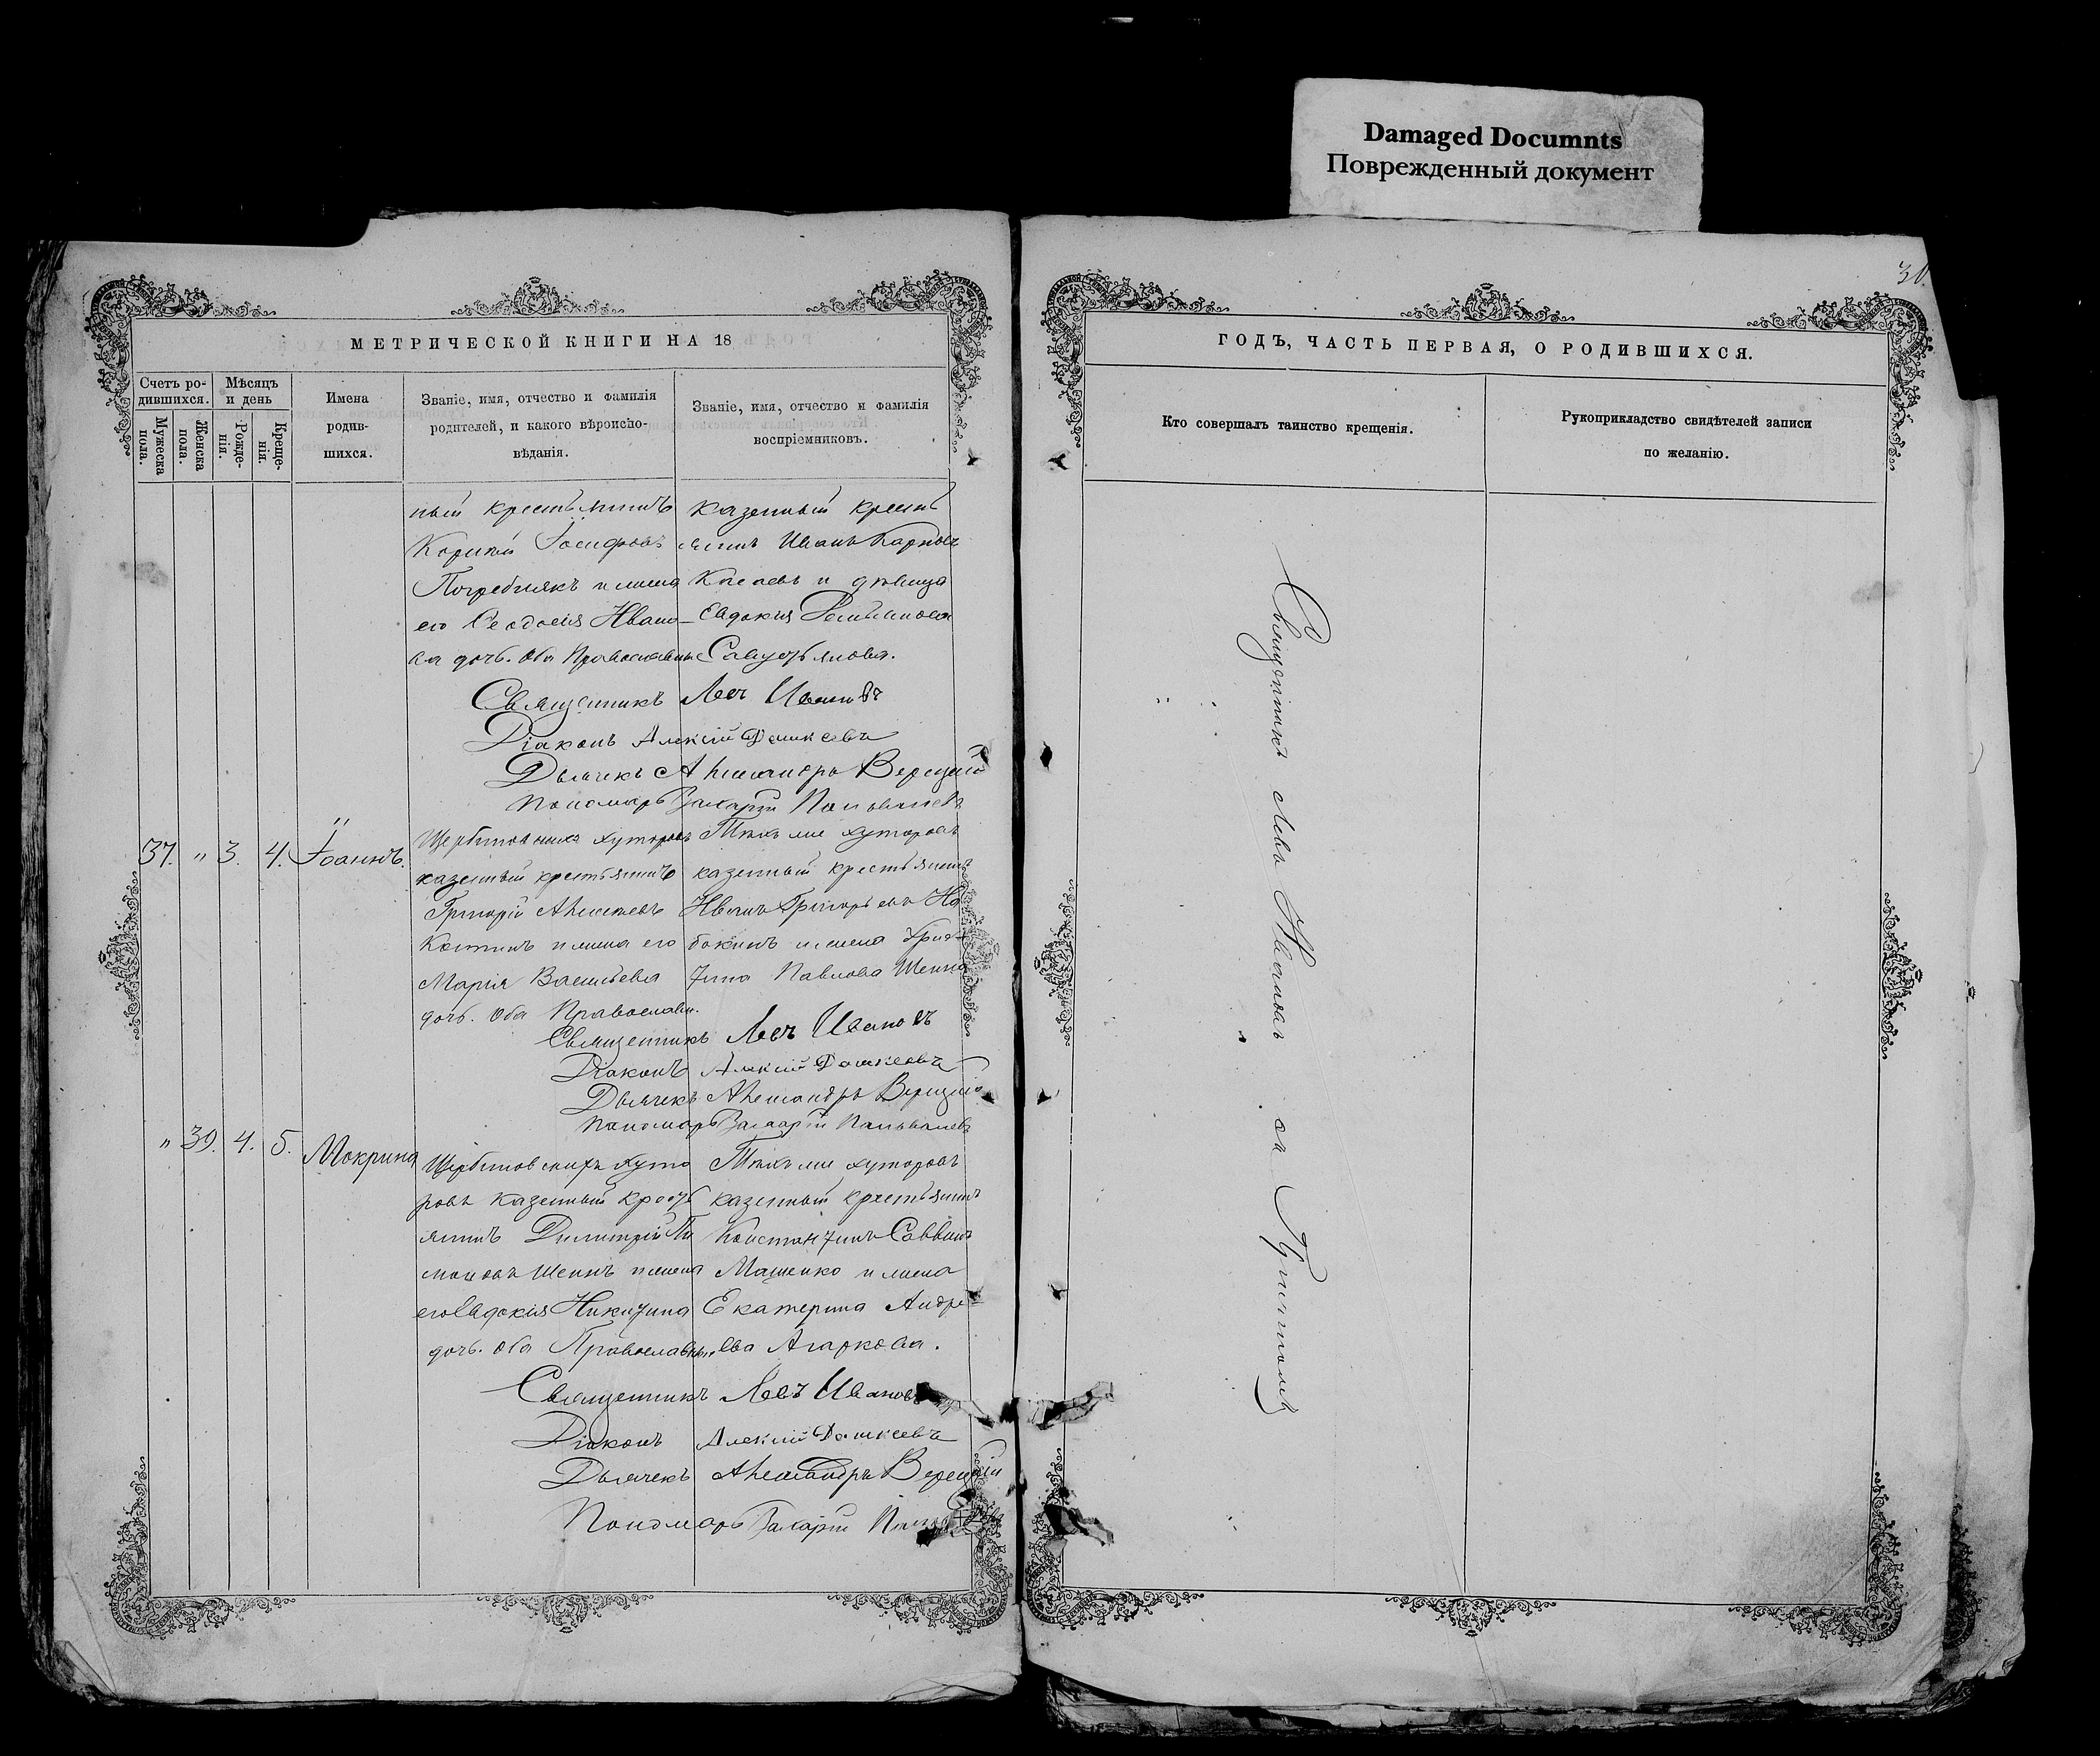 Damaged Documnts
Поврежденный документ
МЕТРИЧЕСКОЙ КНИГИ НА 18
Счетъ ро-
дившихся.
Мужеска
пола.
Женска
пола.
Мѣсяцъ
и день
Рожде-
нія.
Креще-
нія.
Имена
родив-
шихся.
Званіе, имя, отчество и фамилія
родителей, и какого вѣроиспо-
вѣданія.
Званіе, имя, отчество и фамилія
воспріемниковъ.
ный крестьянинъ
Іосифовъ
Погребнякъ и жена
его Ѳеодосія Ивано-
ва дочь. Оба Православны
казенный кресть
янинъ Иванъ Карповъ
и дѣвица
Евдокія
Священникъ Левъ Ивановъ
Діаконъ Алексій
Дьячекъ Александръ Верецкій
Пономарь Захарій
37. " 3. 4. Іоаннъ.
хуторовъ
казенный крестьянинъ
Григорій Алексѣевъ
Костинъ и жена его
Марія Васильева
дочь. Оба Православн.
Тѣхъ же хуторовъ
казенный крестьянинъ
Иванъ Григорьевъ На
бокинъ и жена Хрис
тина Павлова Шеина
Священникъ Левъ Ивановъ
Діаконъ Алексій
Дьячекъ Александръ Верецкій
Пономарь Захарій
" 39. 4. 5. Мокрина
Щербиновскихъ хуто
ровъ казенный кресть
янинъ Димитрій Ти
моновъ Шеинъ и жена
его Евдокія Никитина
дочь. Оба Православны
Тѣхъ же хуторовъ
казенный крестьянинъ
Константинъ Саввинъ
Мащенко и жена
Екатерина Андре-
ева Агаркова.
Священникъ Левъ Ивановъ
Діаконъ Алексій
Дьячекъ Александръ Верецкій
Пономарь Захарій
ГОДЪ, ЧАСТЬ ПЕРВАЯ, О РОДИВШИХСЯ.
Кто совершалъ таинство крещенія.
Рукоприкладство свидѣтелей записи
по желанію.
Священникъ Левъ Ивановъ съ Причтомъ